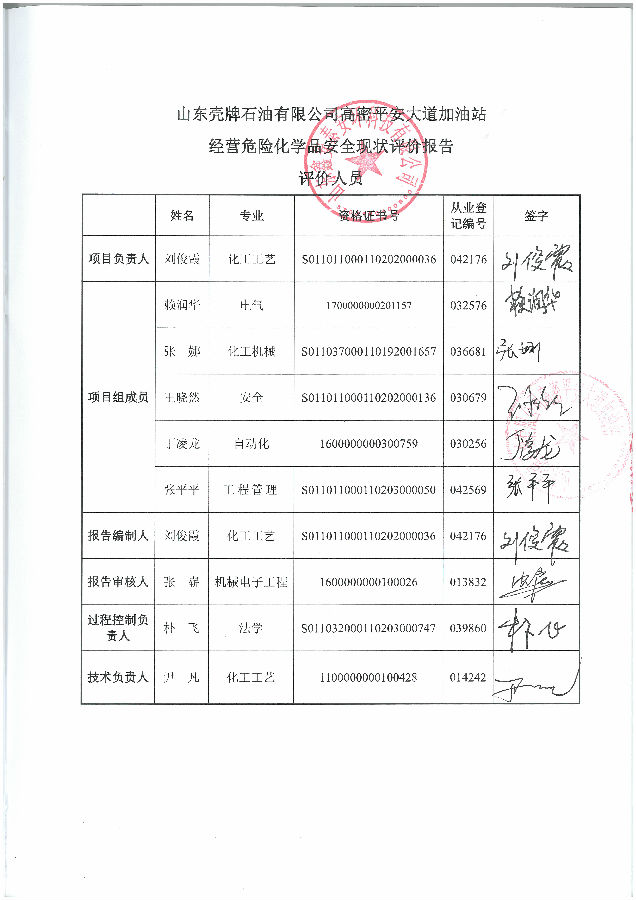 山东壳牌石油有限公司高密平安大道加油站
经营危险化学品安全现状评价报告
评价人员
姓名 专业 资格证书号 从业登记编号 签字
项目负责人 刘俊霞 化工工艺 S011011000110202000036 042176 刘俊霞
项目组成员 赖润华 电气 1700000000201157 032576 赖润华
张 娜 化工机械 S011037000110192001657 036681 张娜
王晓然 安全 S011011000110202000136 030679
丁凌龙 自动化 1600000000300759 030256
张平平 工程管理 S011011000110203000050 042569 张平平
报告编制人 刘俊霞 化工工艺 S011011000110202000036 042176 刘俊霞
报告审核人 张 崭 机械电子工程 1600000000100026 013832
过程控制负责人 林 飞 法学 S011032000110203000747 039860
技术负责人 尹 凡 化工工艺 1100000000100428 014242